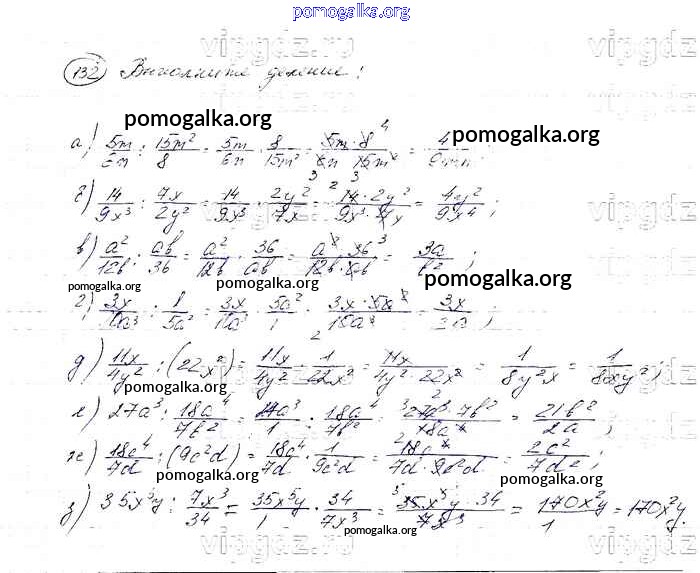 pomogalka.org
vipgdz.ru
132 Выполните деление:
pomogalka.org
pomogalka.org
а) 5m/6n : 15m²/8 = 5m/6n · 8/15m² = 5m·8/6n·15m² = 4/9mn.
б) 14/9x³ : 7x/2y² = 14/9x³ · 2y²/7x = 14·2y²/9x³·7x = 4y²/9x⁴;
в) a²/12b : ab/36 = a²/12b · 36/ab = a²·36/12b·ab = 3a/b²;
pomogalka.org
pomogalka.org
pomogalka.org
г) 3x/10a³ : 1/5a² = 3x/10a³ · 5a²/1 = 3x·5a²/10a³ = 3x/2a;
pomogalka.org
д) 11x/4y² : (22x²) = 11x/4y² · 1/22x² = 11x/4y²·22x² = 1/8y²x = 1/8xy²;
pomogalka.org
е) 27a³ : 18a⁴/7b² = 27a³/1 · 18a⁴/7b² = 27a³·7b²/18a⁴ = 21b²/2a;
pomogalka.org
ж) 18c⁴/7d : (9c²d) = 18c⁴/7d · 1/9c²d = 18c⁴/7d·9c²d = 2c²/7d²;
pomogalka.org
pomogalka.org
з) 35x⁵y : 7x³/34 = 35x⁵y/1 · 34/7x³ = 35x⁵y·34/7x³ = 170x²y/1 = 170x²y.
pomogalka.org
vipgdz.ru